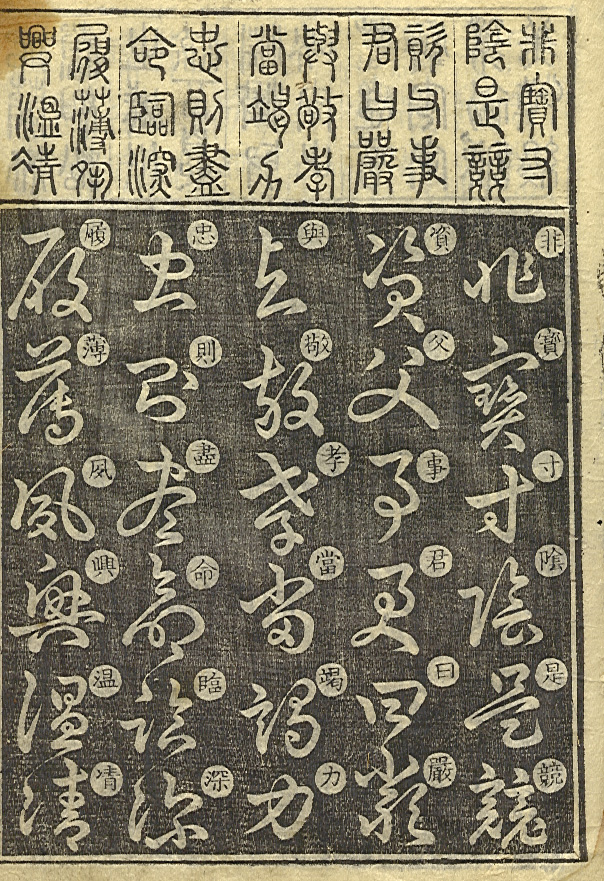 非寶寸
陰是競
資父事
君曰嚴
與敬孝
當竭力
忠則盡
命臨深
履薄夙
興溫清
非寶寸陰是競
非寶寸陰是競
資父事君曰嚴
資父事君曰嚴
與敬孝當竭力
與敬孝當竭力
忠則盡命臨深
忠則盡命臨深
履薄夙興温凊
履薄夙興温清